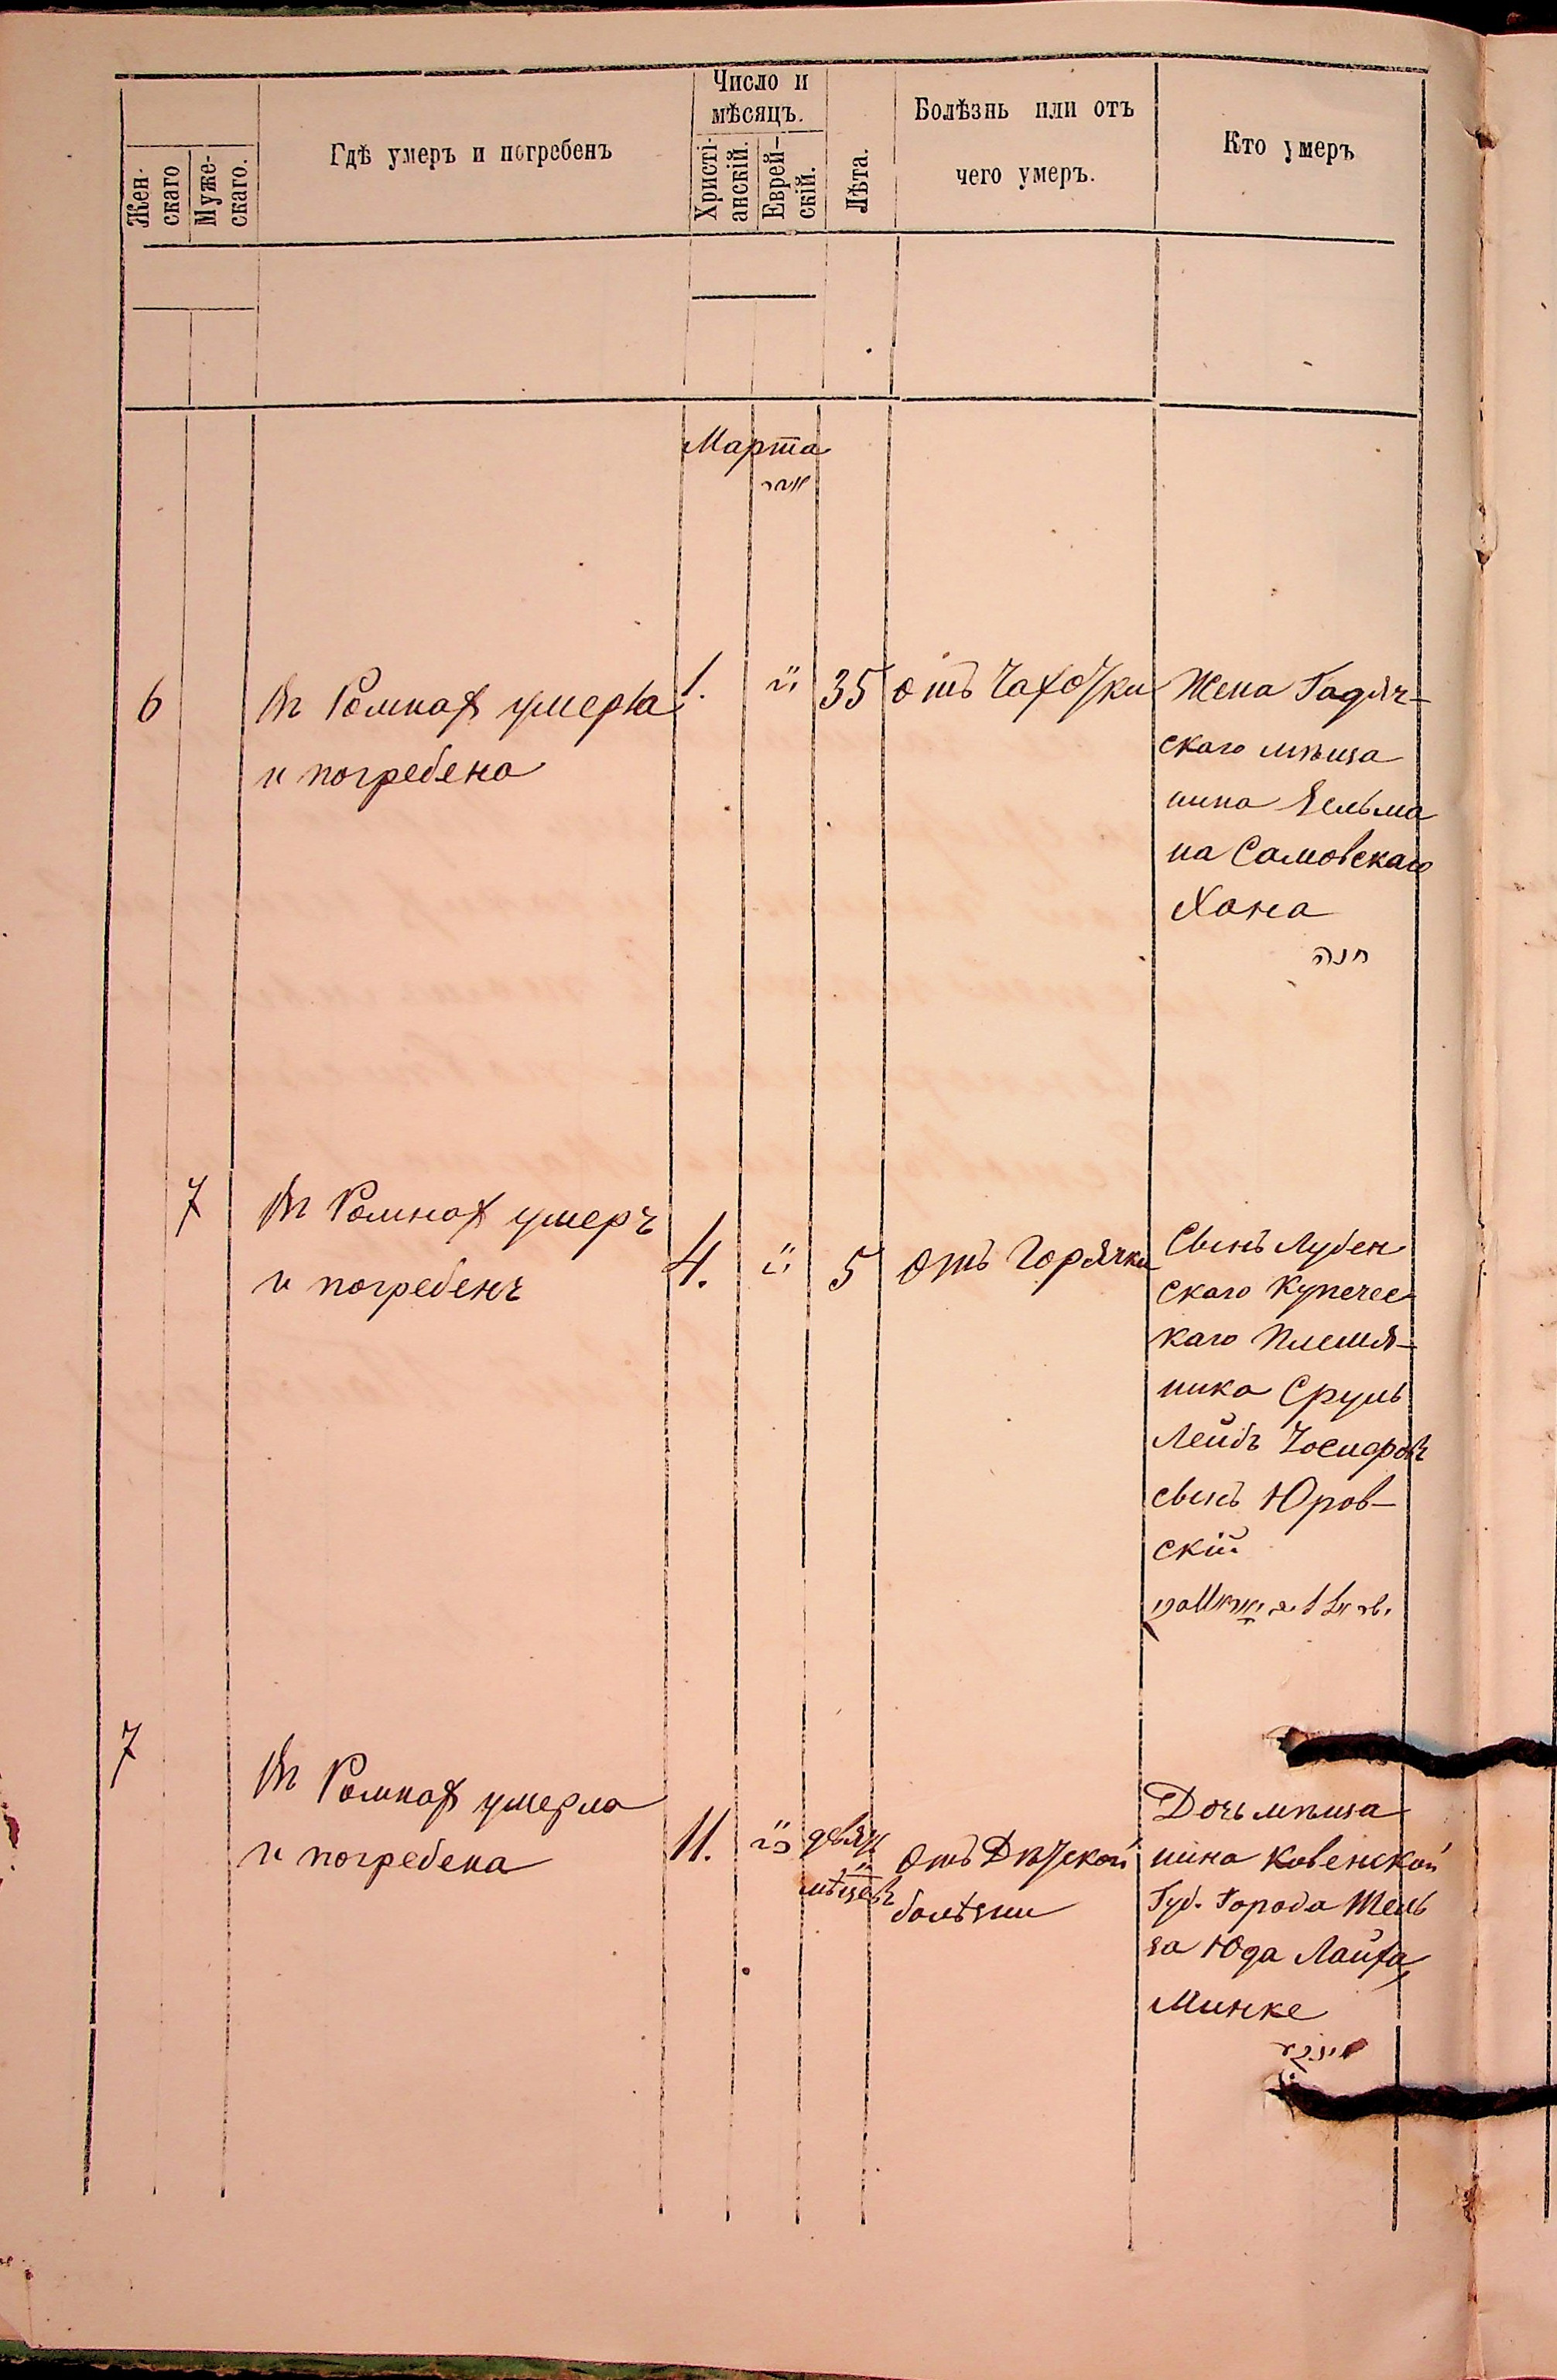 Жен-
скаго
Муже-
скаго.
Гдѣ умеръ и погребенъ
Число и
мѣсяцъ.
Христі-
анскій.
Еврей-
скій.
Лѣта.
Болѣзнь или отъ
чего умеръ.
Кто умеръ
Марта
אדר
6
Въ Ромнах умерла
и погребена
1.
35
отъ Чахотки
Жена Гадяч-
скаго мѣща
нина Зельма
на Самовскаго
Хана
חנה
7
Въ Ромнах умеръ
и погребенъ
4.
5
отъ Горячки
Сынъ Лубен
скаго Купечес
каго Племя-
ника Сруль
Лейбъ Іосифовъ
сынъ Юров-
скій
7
Въ Ромнах умерла
и погребена
11.
девять
мѣсяцевъ
отъ Дѣтской
болѣзни
Дочь мѣща
нина Ковенской
Губ. Города Тель
за Юда Лайта
Минке